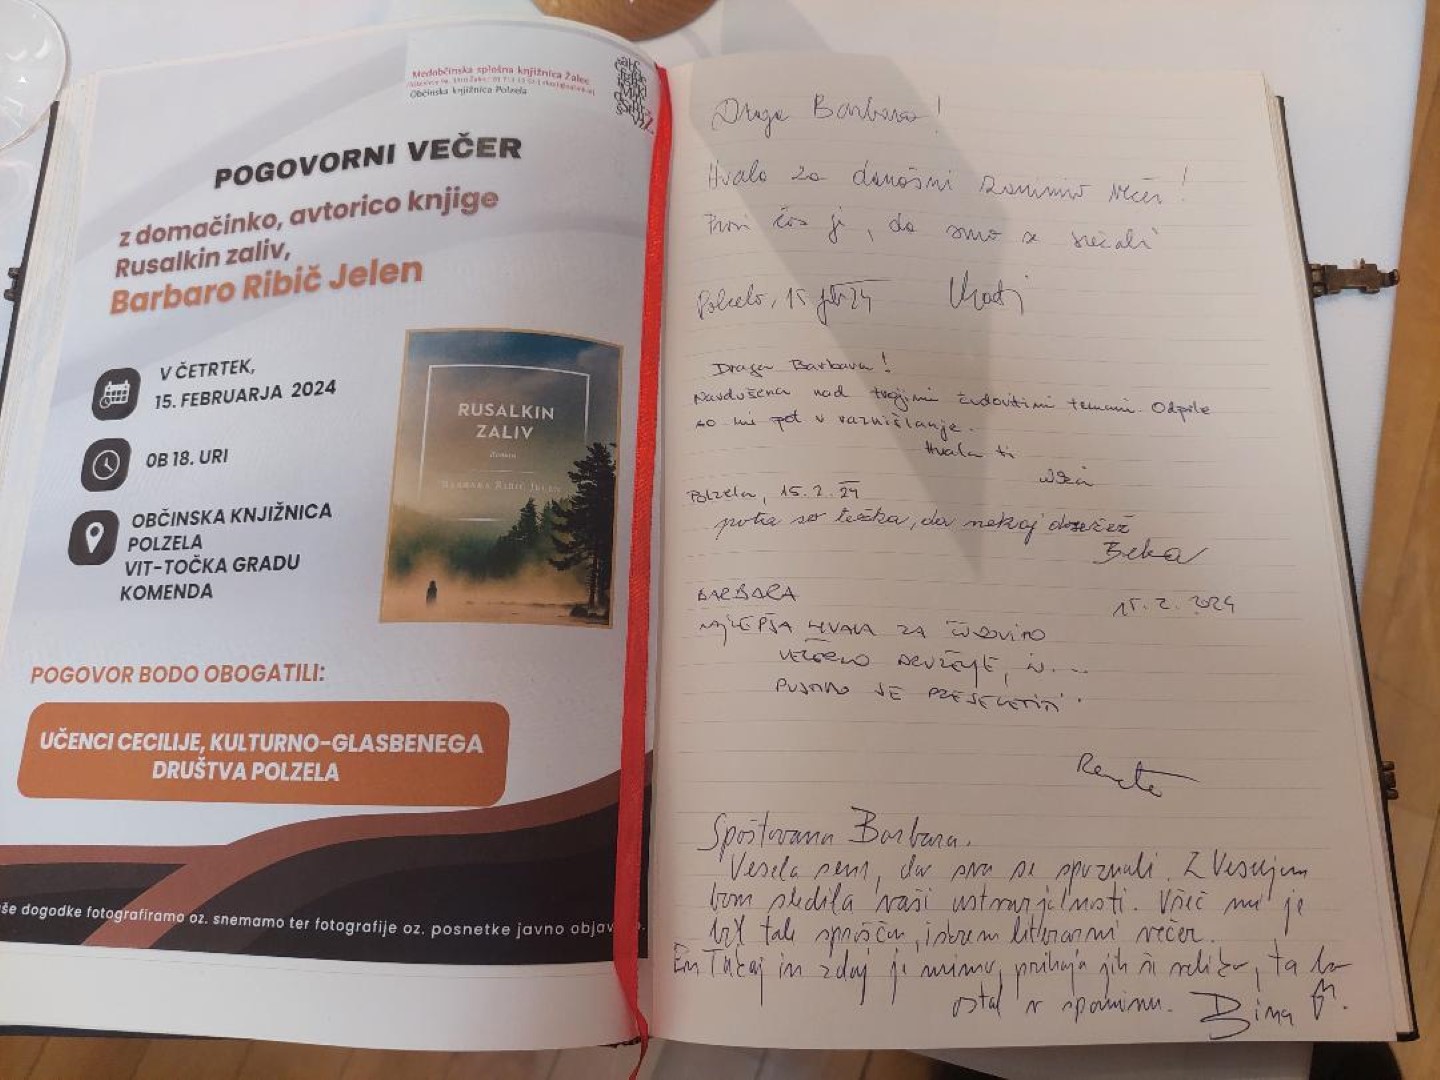 Medobčinska splošna knjižnica Žalec
Občinska knjižnica Polzela
POGOVORNI VEČER
z domačinko, avtorico knjige
Rusalkin zaliv,
Barbaro Ribič Jelen
V ČETRTEK,
15. FEBRUARJA 2024
OB 18. URI
OBČINSKA KNJIŽNICA
POLZELA
VIT-TOČKA GRADU
KOMENDA
RUSALKIN
ZALIV
Roman
BARBARA RIBIČ JELEN
POGOVOR BODO OBOGATILI:
UČENCI CECILIJE, KULTURNO-GLASBENEGA
DRUŠTVA POLZELA
še dogodke fotografiramo oz. snemamo ter fotografije oz. posnetke javno objav
Draga Barbara!
Hvala za današnji zanimiv večer!
Prvi čas je, da smo se srečali
Polzela, 15 24
Draga Barbara!
Navdušena nad tvojimi čudovitimi temami. Odprle
so mi pot v razmišljanje.
Hvala ti
Polzela, 15.2.24
pota so težka, da nekaj dosežeš
BARBARA
15.2.2024
NAJLEPŠA HVALA ZA ČUDOVITO
VEČERNO DRUŽENJE, IN...
PUSTIMO SE PRESENETITI
Renata
Spoštovana Barbara.
Vesela sem, da sva se spoznali. Z veseljem
bom sledila vaši ustvarjalnosti. Všeč mi je
bil tak sproščen, iskren literarni večer.
En Tukaj in zdaj je mimo, prihaja jih še veliko, ta bo
ostal v spominu.